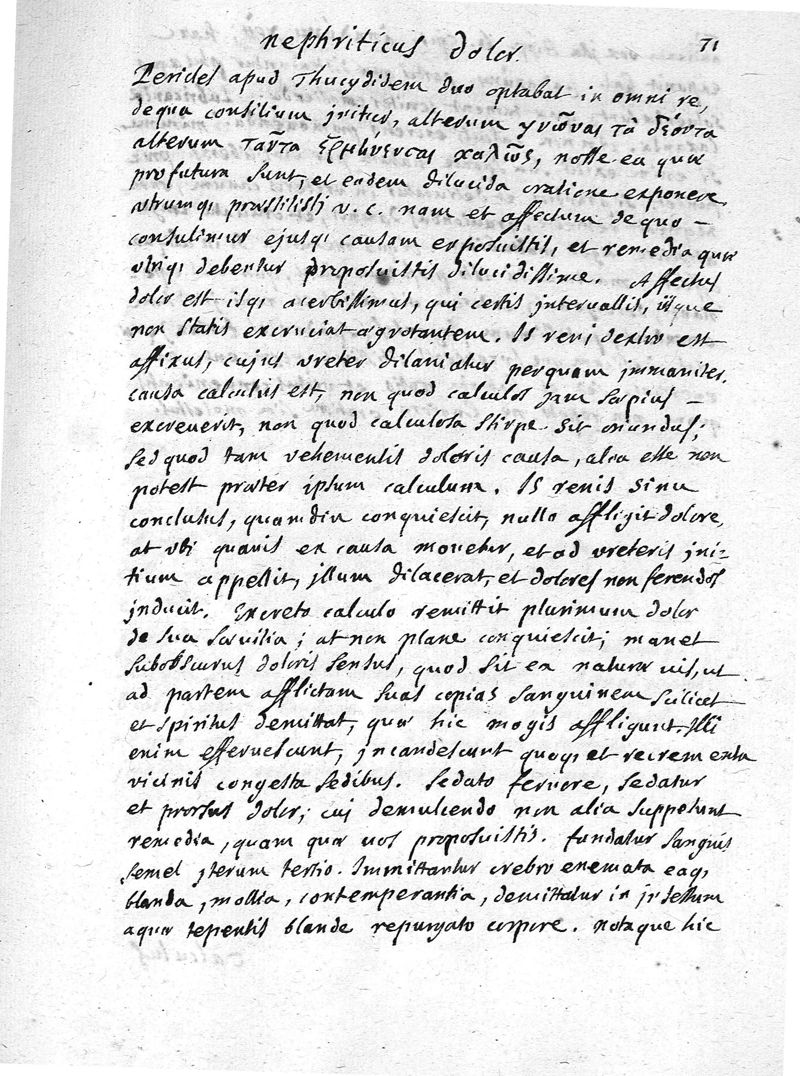 nephriticus dolor. 71
Pericles apud Thucydidem duo optabat in omni re,
de qua consilium initur, alterum γνῶναι τὰ δέοντα
alterum ταῦτα ἑρμήνευσαι καλῶς, nosse ea quæ
profutura sunt, et eadem dilucida oratione exponere
utrumq; præstitistj v. c. nam et affectum de quo –
consulimur ejusq; causam exposuistis, et remedia quæ
utriq; debentur proposuistis dilucidissime. Affectus
dolor est isq; acerbissimus, qui certis jntervallis, iisque
non statis excruciat ægrotantem. Is renj dextro est
affixus, cujus vreter dilaniatur perquam jmmaniter.
causa calculus est, non quod calculos jam sæpius –
excreverit, non quod calculosa stirpe sit oriundus;
sed quod tam vehementis doloris causa, alia esse non
potest præter ipsum calculum. Is renis sinu
conclusus, quamdiu conquiescit, nullo affligit dolore,
at vbi quavis ex causa movetur, et ad vreteris jni-
tium appellit, jllum dilacerat, et dolores non ferendos
jnducit. Excreto calculo remittit plurimum dolor
de sua sævitia; at non plane conquiescit; manet
subobscurus doloris sensus, quod sit ex naturæ vis, ut
ad partem afflictam suas copias sanguinem scilicet
et spiritus demittat, quæ hic magis affligunt. Illi
enim effervescunt, jncandescunt quoq; et excrementa
vicinis congesta sedibus. Sedato fervore, sedatur
et prorsus dolor; cuj demulcendo non alia suppetunt
remedia, quam quæ vos proposuistis. fundatur sanguis
semel jterum tertio. Immittantur crebro enemata eaq;
blanda, mollia, contemperantia, demittatur in jnsessum
aquæ tepentis blande repurgato corpore. notaque hic